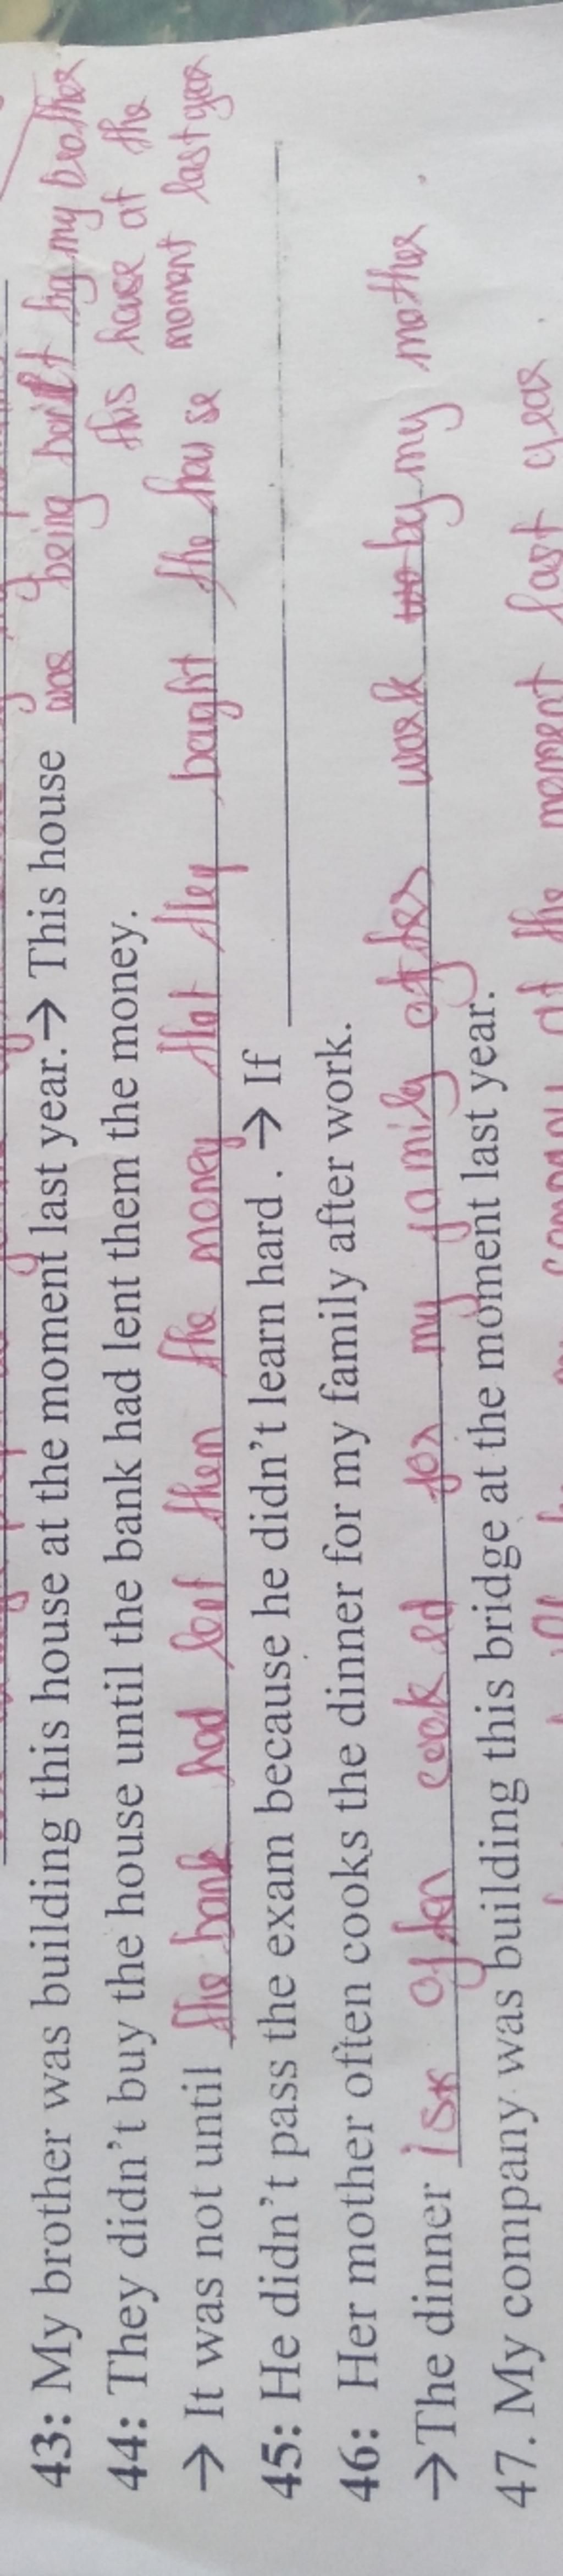 43: My brother was building this house at the moment last year.→ This house was being built by my brother
this house at the
44: They didn't buy the house until the bank had lent them the money.
moment last year
→ It was not until the bank had lent them the money that they bought the house
45: He didn't pass the exam because he didn't learn hard . → If
46: Her mother often cooks the dinner for my family after work.
→The dinner is often cooked for my family after work by my mother.
47. My company was building this bridge at the moment last year.
company at the moment last year.